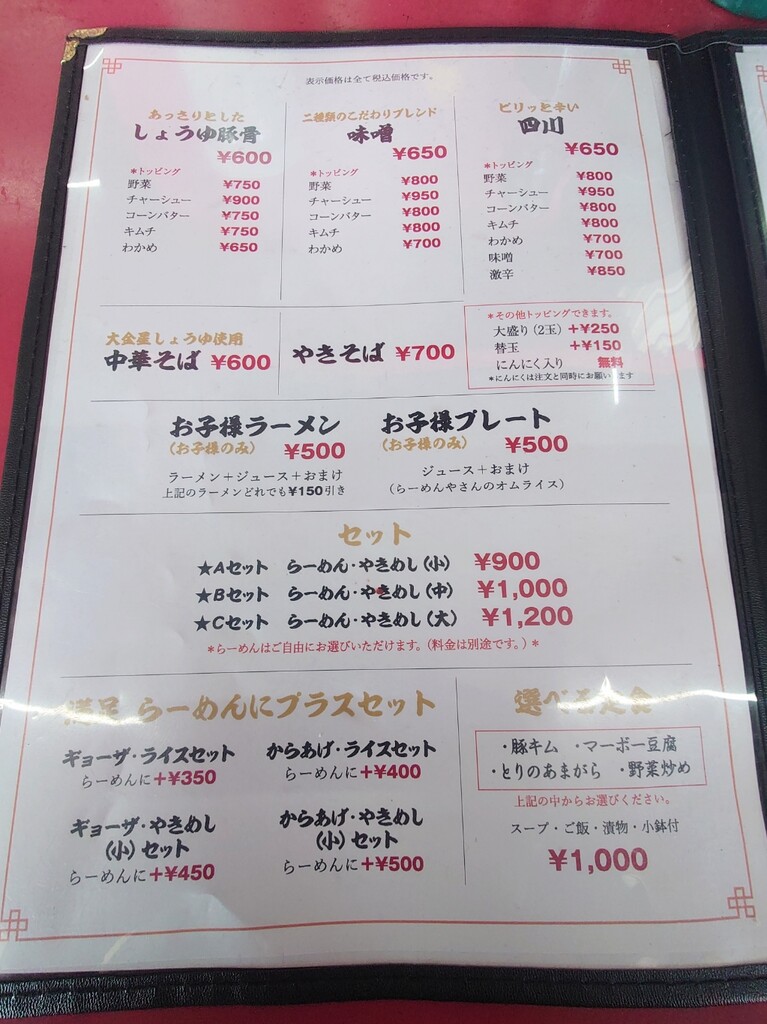 表示価格は全て税込価格です。
あっさりとした
しょうゆ豚骨
¥600
*トッピング
野菜 ¥750
チャーシュー ¥900
コーンバター ¥750
キムチ ¥750
わかめ ¥650
二種類のこだわりブレンド
味噌
¥650
*トッピング
野菜 ¥800
チャーシュー ¥950
コーンバター ¥800
キムチ ¥800
わかめ ¥700
ピリッと辛い
四川
¥650
*トッピング
野菜 ¥800
チャーシュー ¥950
コーンバター ¥800
キムチ ¥800
わかめ ¥700
味噌 ¥700
激辛 ¥850
大金星しょうゆ使用
中華そば ¥600
やきそば ¥700
*その他トッピングできます。
大盛り(2玉) +¥250
替玉 +¥150
にんにく入り 無料
*にんにくは注文と同時にお願います
お子様ラーメン
(お子様のみ) ¥500
ラーメン+ジュース+おまけ
上記のラーメンどれでも¥150引き
お子様プレート
(お子様のみ) ¥500
ジュース+おまけ
(らーめんやさんのオムライス)
セット
★Aセット らーめん・やきめし(小) ¥900
★Bセット らーめん・やきめし(中) ¥1,000
★Cセット らーめん・やきめし(大) ¥1,200
*らーめんはご自由にお選びいただけます。(料金は別途です。)*
満足 らーめんにプラスセット
ギョーザ・ライスセット
らーめんに+¥350
からあげ・ライスセット
らーめんに+¥400
ギョーザ・やきめし
(小)セット
らーめんに+¥450
からあげ・やきめし
(小)セット
らーめんに+¥500
選べる定食
・豚キム ・マーボー豆腐
・とりのあまがら ・野菜炒め
上記の中からお選びください。
スープ・ご飯・漬物・小鉢付
¥1,000